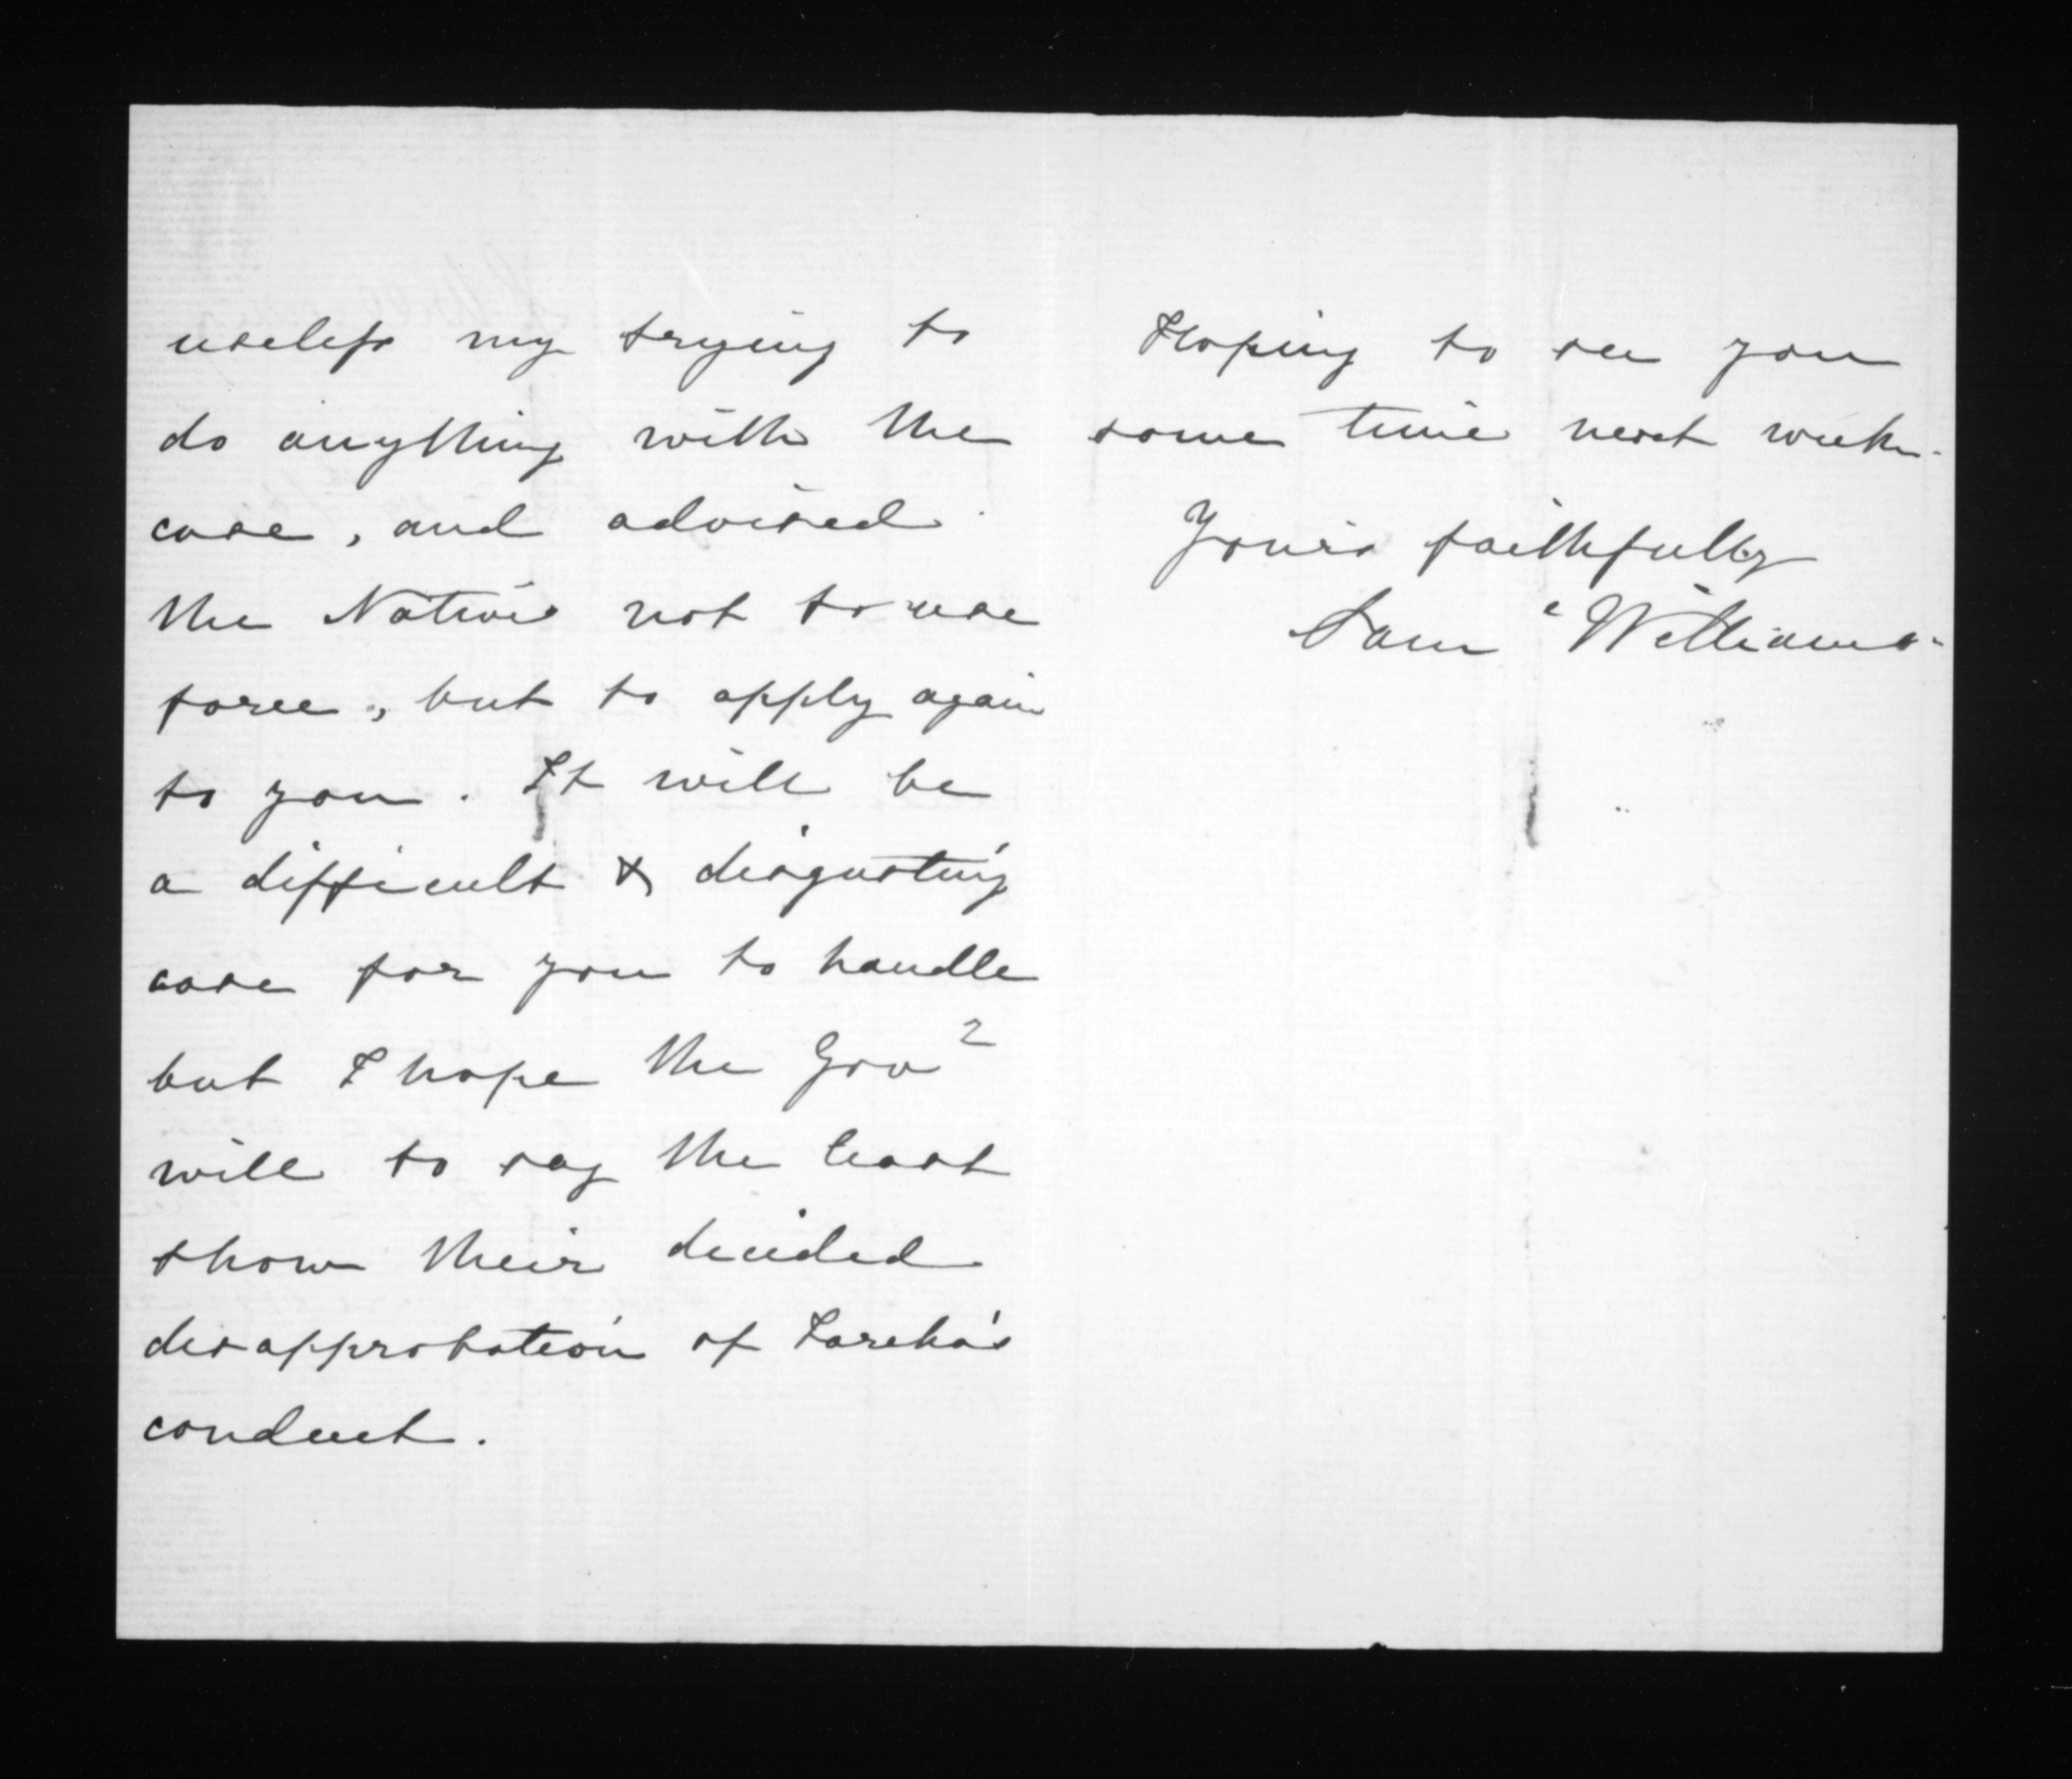 useless my trying to
do anything with the
case, and advised
the Native not to use
force, but to apply again
to you. It will be
a difficult & disgusting
case for you to handle
but I hope the Gov^t
will to say the least
show their decided
disapprobation of Tareha's
conduct.
Hoping to see you
some time next week.
Yours faithfully
Sam^l Williams.